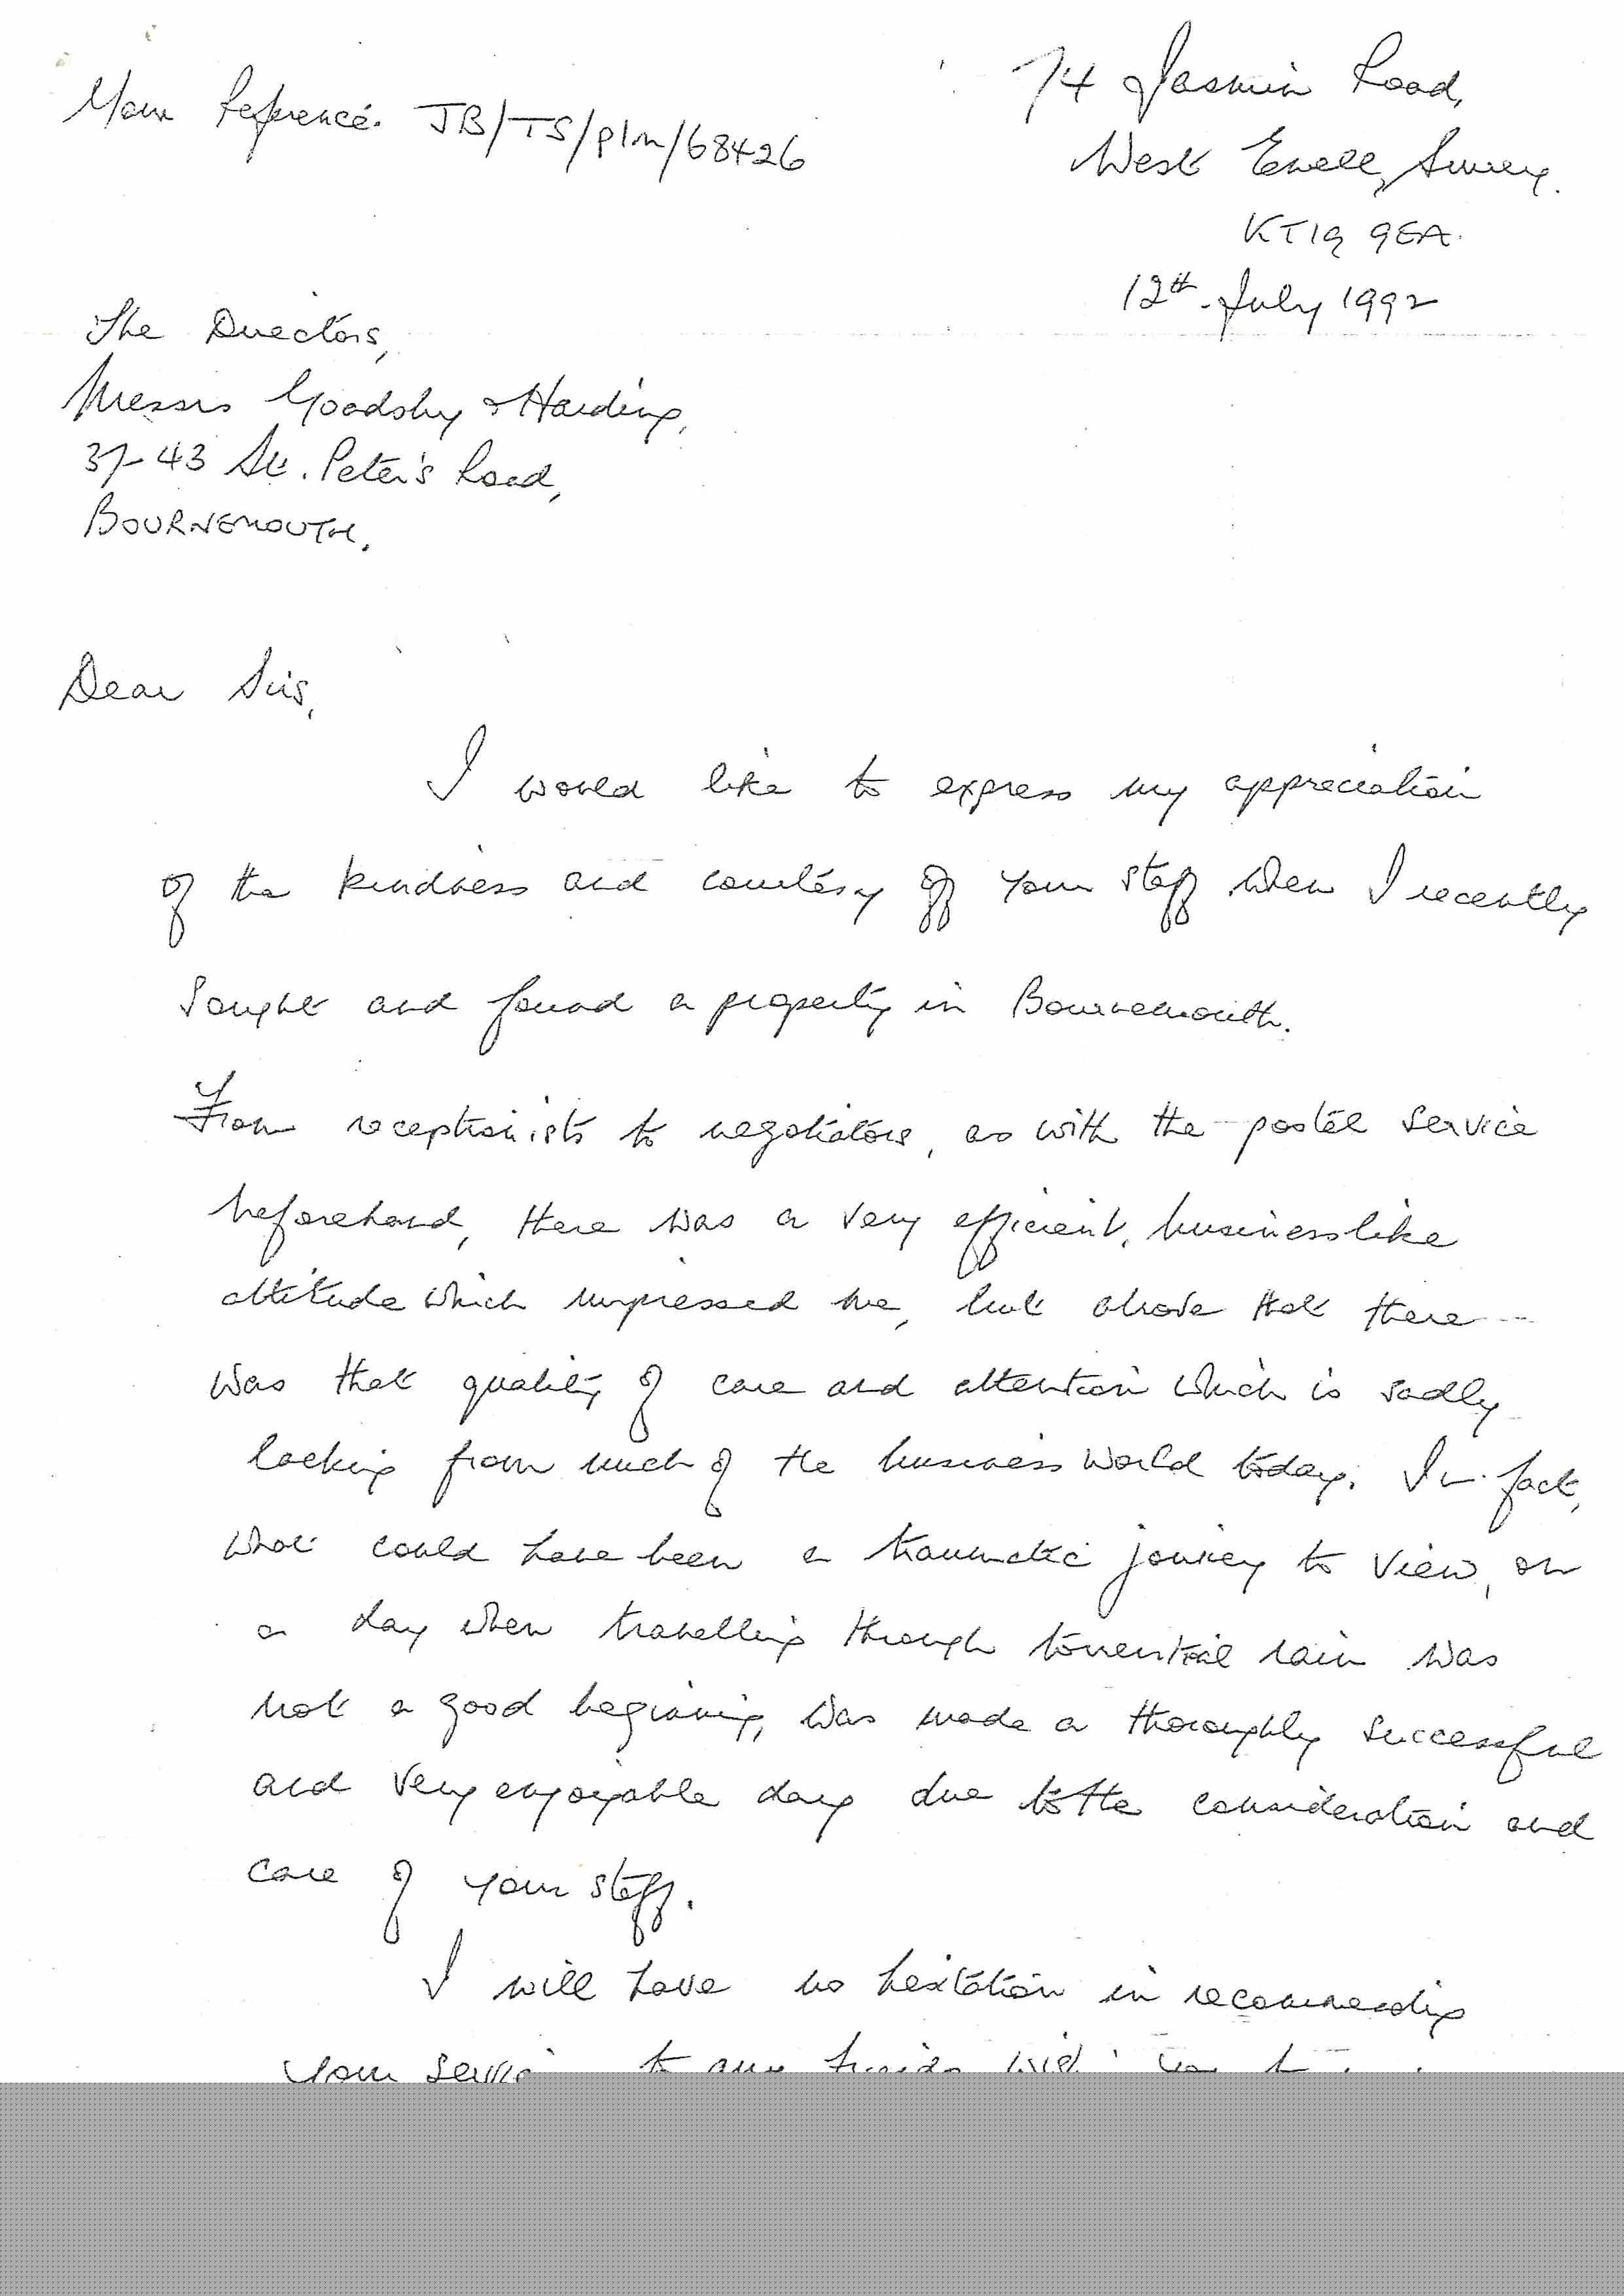 Your Reference: JB/TS/plm/68426
74 Jasmin Road,
West Ewell, Surrey.
KT19 9EA.
12th July 1992
The Directors,
Messrs Goadsby & Harding,
37-43 St. Peter's Road,
BOURNEMOUTH.
Dear Sirs,
I would like to express my appreciation
of the kindness and courtesy of your staff when I recently
sought and found a property in Bournemouth.
From receptionists to negotiators, as with the postal service
beforehand, there was a very efficient, businesslike
attitude which impressed me, but above that there
was that quality of care and attention which is sadly
lacking from much of the business world today. In fact,
what could have been a traumatic journey to view, on
a day when travelling through torrential rain was
not a good beginning, was made a thoroughly successful
and very enjoyable day due to the consideration and
care of your staff.
I will have no hesitation in recommending
your to any friends